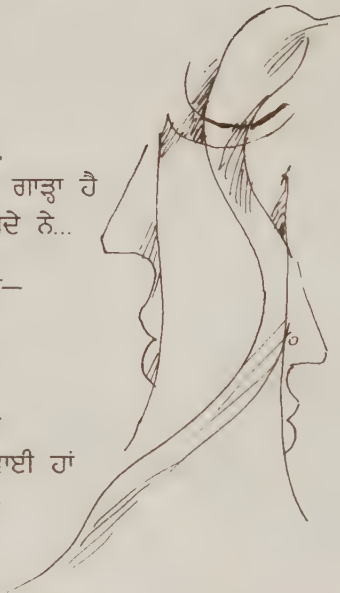 ਗਾੜ੍ਹਾ ਹੈ
ਦੇ ਨੇ...
–
ਹਾਂ